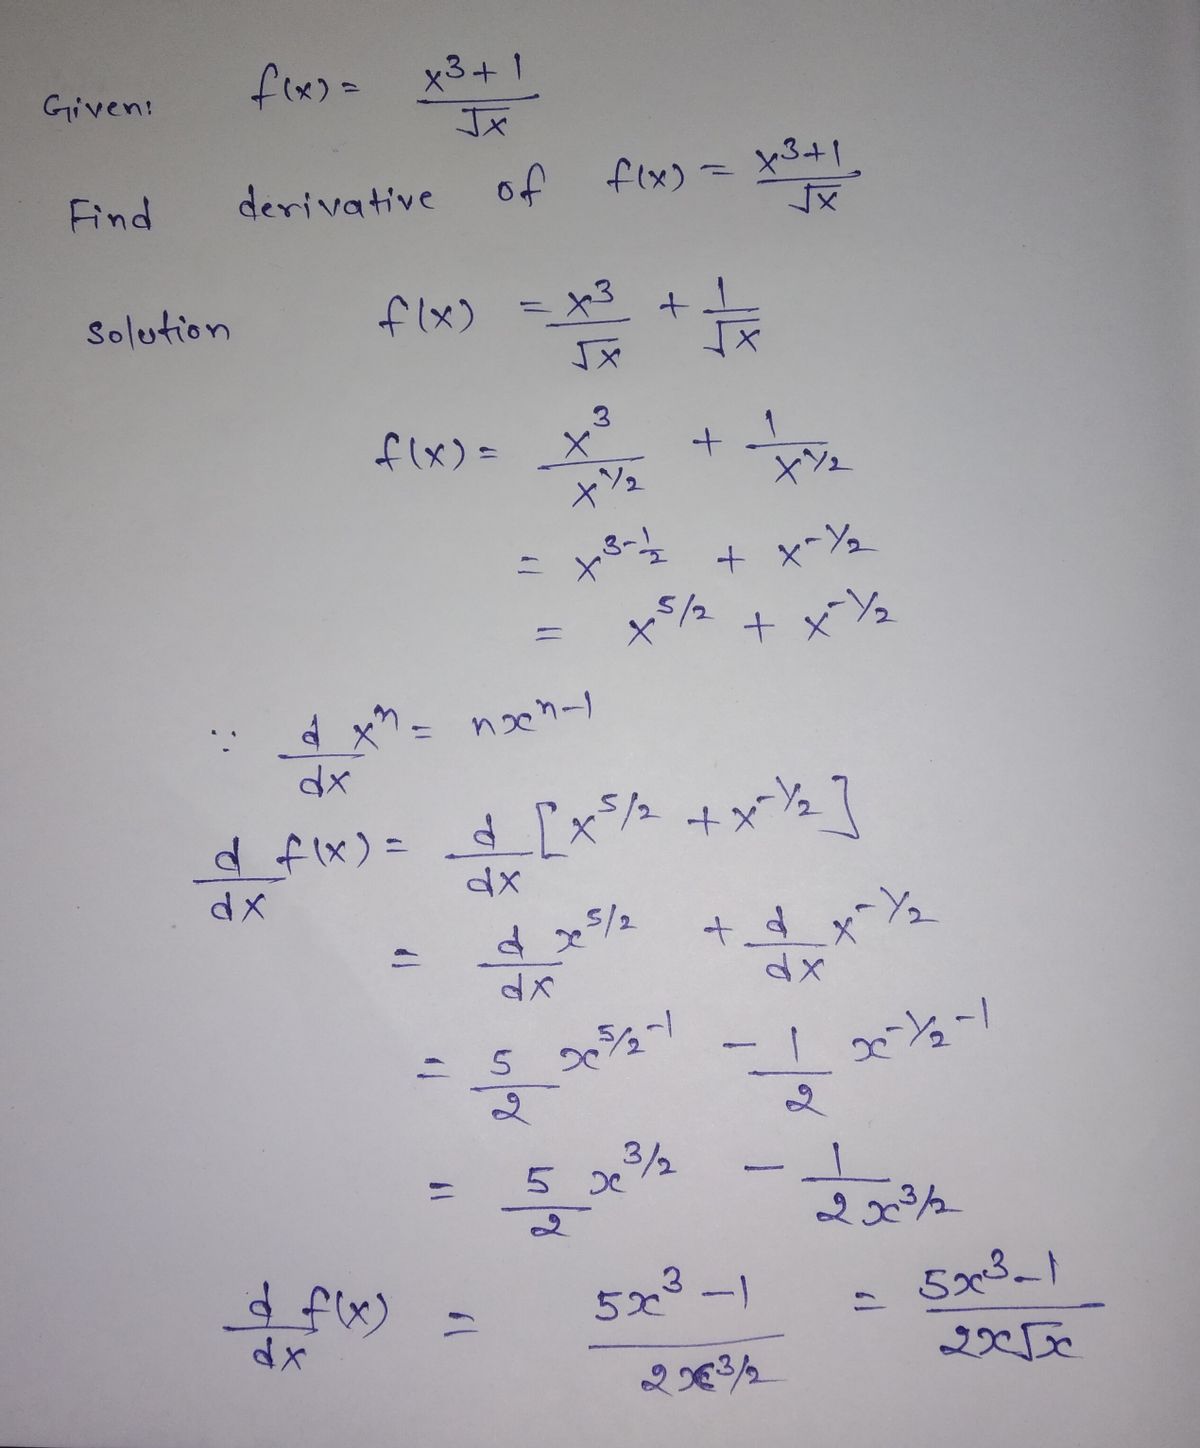 Given: f(x) = x³+1 / √x
Find derivative of f(x) = x³+1 / √x
Solution f(x) = x³/√x + 1/√x
f(x) = x³/x^1/2 + 1/x^1/2
= x^3-1/2 + x^-1/2
= x^5/2 + x^-1/2
∵ d/dx x^n = nx^n-1
d/dx f(x) = d/dx [x^5/2 + x^-1/2]
= d/dx x^5/2 + d/dx x^-1/2
= 5/2 x^5/2-1 - 1/2 x^-1/2-1
= 5/2 x^3/2 - 1/2x^3/2
d/dx f(x) = 5x³-1 / 2x^3/2 = 5x³-1 / 2x√x